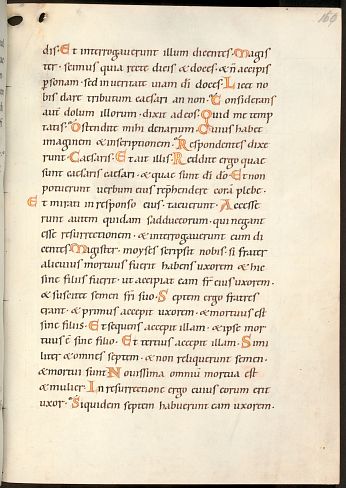 160
dis. Et interrogauerunt illum dicentes. Magis
ter. scimus quia recte dicis & doces. & n̄ accipis
p̱sonam. sed in ueritate uiam dī doces. Licet no
bis dare tributum caesari an non. Considerans
aut̄ dolum illorum. dixit ad eos. Quid me temp
tatis. Ostendite mihi denarium. Cuius habet
imaginem & inscriptionem. Respondentes dixe
runt. Caesaris. Et ait illis. Reddite ergo quae
sunt caesaris caesari. & quae sunt dī dō. Et non
potuerunt uerbum eius rep̱hendere corā plebe.
Et mirati in responso eius. tacuerunt. Accesse
runt autem quidam sadducaeorum. qui negant
esse resurrectionem. & interrogauerunt eum di
centes. Magister. moyses scripsit nobis. si frater
alicuius mortuus fuerit habens uxorem. & hic
sine filiis fuerit. ut accipiat eam fr̄ eius uxorem.
& suscitet semen fr̄i suo. Septem ergo fratres
erant. & primus accepit uxorem. & mortuus est
sine filiis. Et sequens accepit illam. & ipse mor
tuus ē sine filio. Et tertius accepit illam. Simi
liter & omnes septem. & non reliquerunt semen.
& mortui sunt. Nouissima omniū mortua est
& mulier. In resurrectione ergo cuius eorum erit
uxor. Siquidem septem habuerunt eam uxorem.